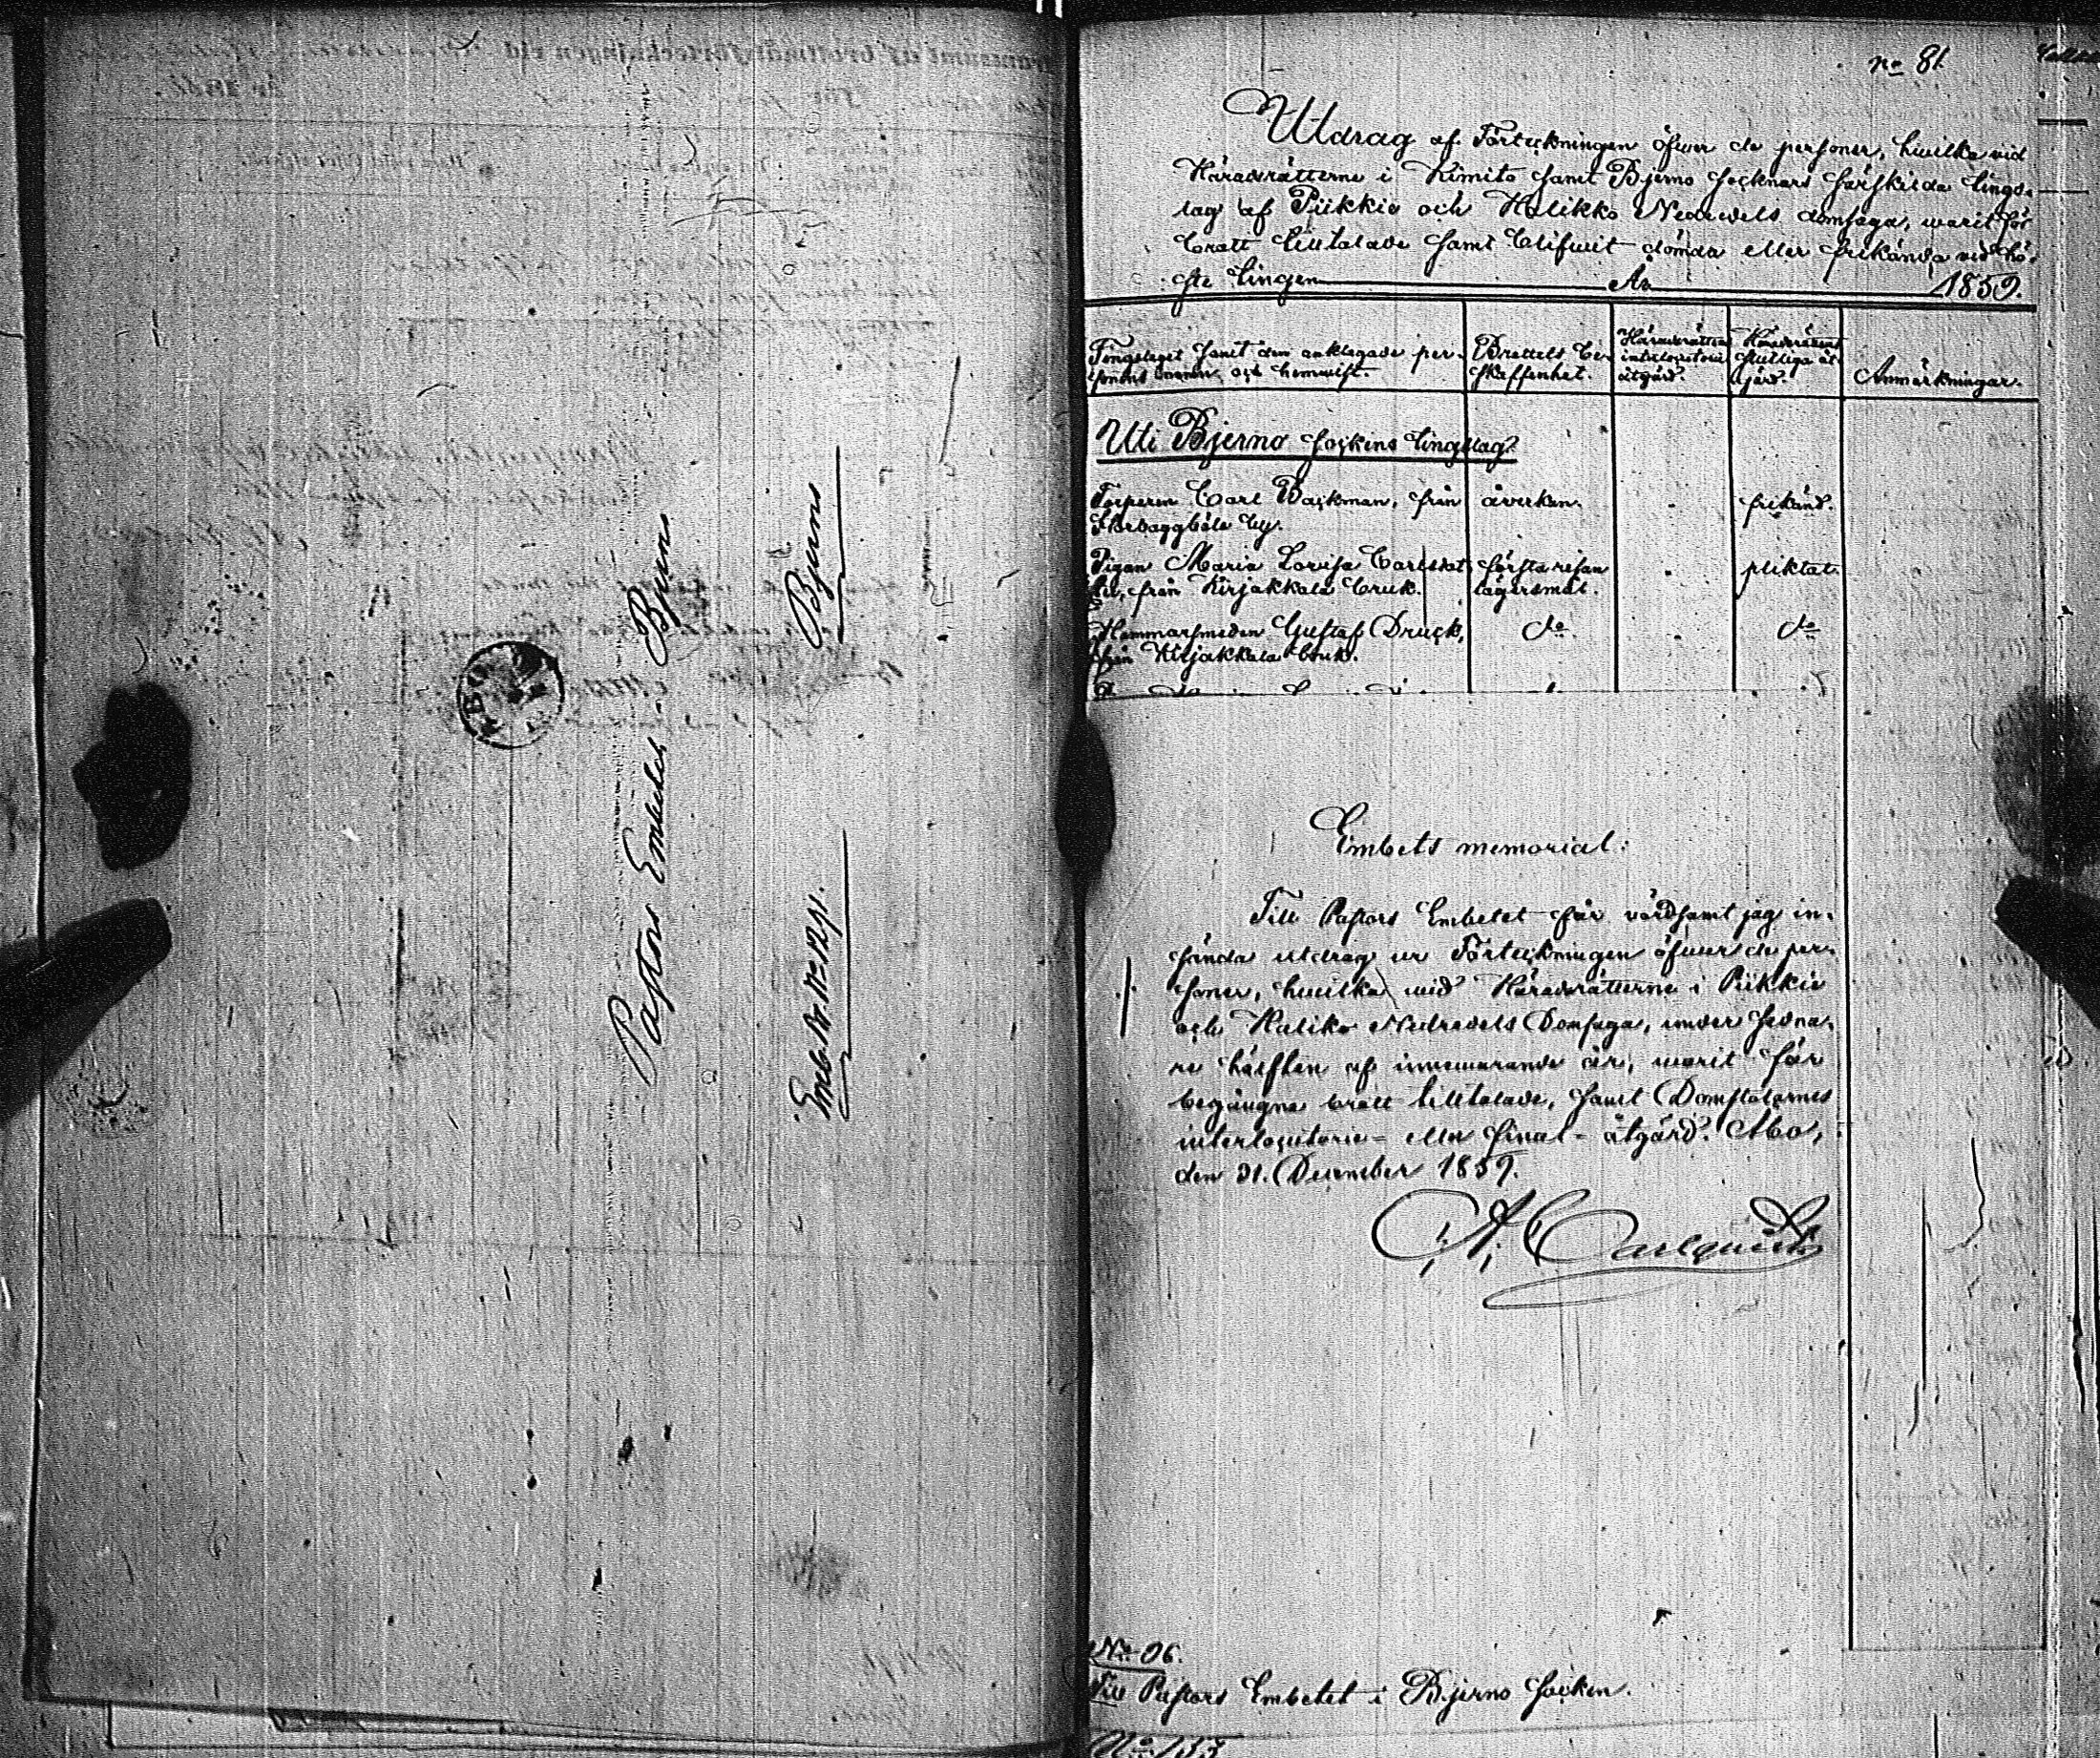 Pastors Embetet i Bjerno
Bjerno
Emb. Br. No 1291.
ÅBO
No 81.
Utdrag af Förteckningen öfwer de personer, hwilka vid
Häradsrätterne i Kimito samt Bjerno Socknars särskilda tings-
lag af Piikkie och Halikko Nedredels domsaga, warit för
brott tilltalade samt blifwit dömda eller frikända vid hö-
ste tingen År 1859.
Tingslaget samt den anklagade per-
sonens namn och hemwist.
Brottets be-
skaffenhet.
Häradsrättens
interlocutorie
åtgård.
Häradsrättens
slutliga åt-
gärd.
Anmärkningar.
Uti Bjerno Sockens tingslag.
Torparen Carl Backman, från åverkan. frikänd.
by.
Pigan Maria Lovisa Carlsdot- första resan pliktat.
ter, från Kirjakkala bruk. lägersmål.
Hammarsmeden Gustaf Druck, do do
från Kirjakkala bruk.
Embets memorial:
Till Pastors Embetet får vördsamt jag in-
sända utdrag ur Förteckningen öfwer de per-
soner, hwilka wid Häradsrätterne i Piikkie
och Haliko Nedredels Domsaga, under sedna-
re hälften af innewarande år, warit för
begångne brott tilltalade, samt Domstolarnes
interlocutorie- eller final- åtgärd. Åbo,
den 31. December 1859.
Carlquist
No 96.
Till Pastors Embetet i Bjerno Socken.